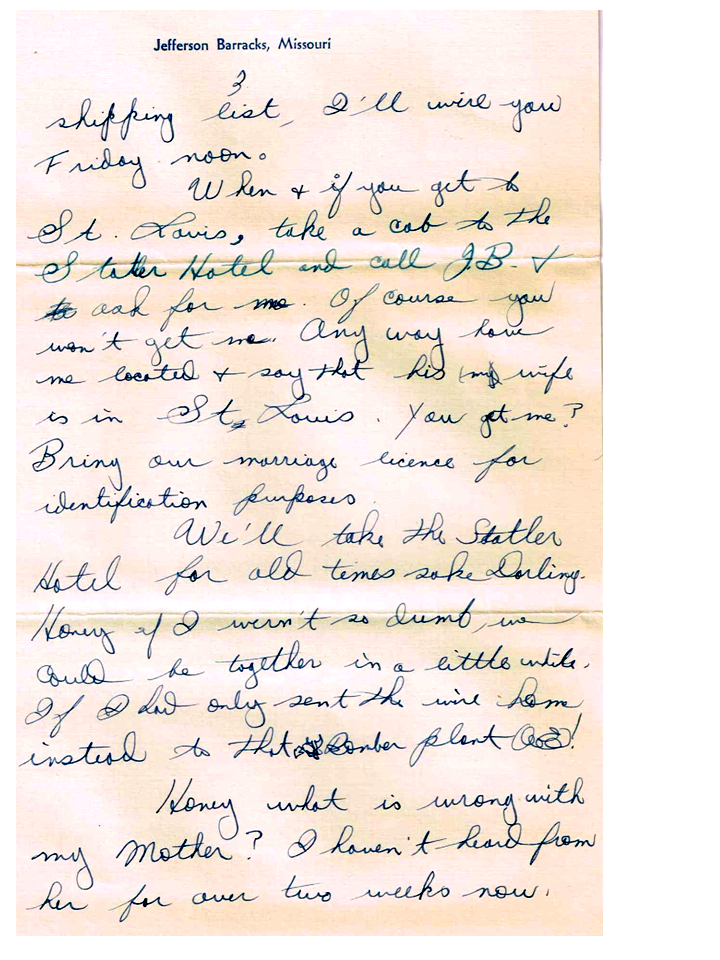 Jefferson Barracks, Missouri
3
shipping list, I'll wire you
Friday noon.
When & if you get to
St. Louis, take a cab to the
Statler Hotel and call J.B. &
ask for me. Of course you
won't get me. Any way have
me located & say that his (my) wife
is in St. Louis. You get me?
Bring our marriage licence for
identification purposes.
We'll take the Statler
Hotel for old times sake Darling.
Honey if I wern't so dumb, we
could be together in a little while.
If I had only sent the wire home
instead to that Bomber plant
Honey what is wrong with
my Mother? I haven't heard from
her for over two weeks now.